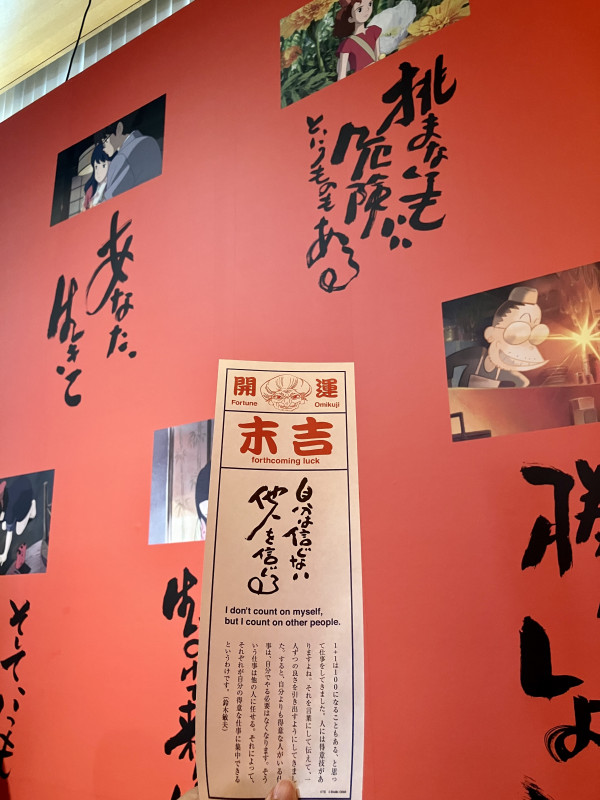 挑まないも
危険だ
というものもある
あなた、
生きて
開運
Fortune Omikuji
末吉
forthcoming luck
自分は信じない
他人を信じる
I don't count on myself,
but I count on other people.
1+1は100になることもある、と思っ
て仕事をしてきました。人には得意技があ
りますよね。それを言葉にして伝えて、一
人ずつの良さを引き出すようにしてきまし
た。すると、自分よりも得意な人がいる仕
事は、自分でやる必要はなくなります。そう
いう仕事は他の人に任せる。それによって、
それぞれが自分の得意な仕事に集中できる
というわけです。〔鈴木敏夫〕
そして、いつも